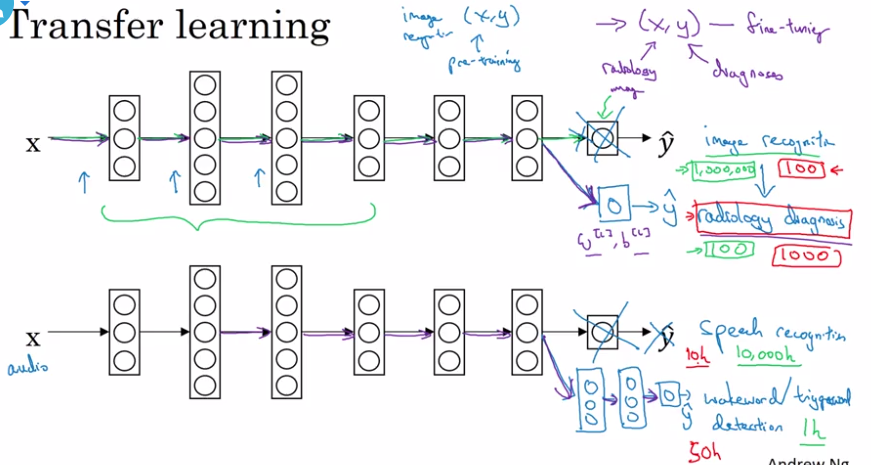 Transfer learning
image (x,y)
recognition
pre-training
→ (x,y) — fine-tuning
radiology
image
diagnoses
x
ŷ
image recognition
1,000,000 100
ŷ
radiology diagnosis
w[L], b[L]
100 1000
x
audio
ŷ
Speech recognition
10h 10,000h
ŷ
wakeword/triggerword
detection 1h
50h
Andrew Ng